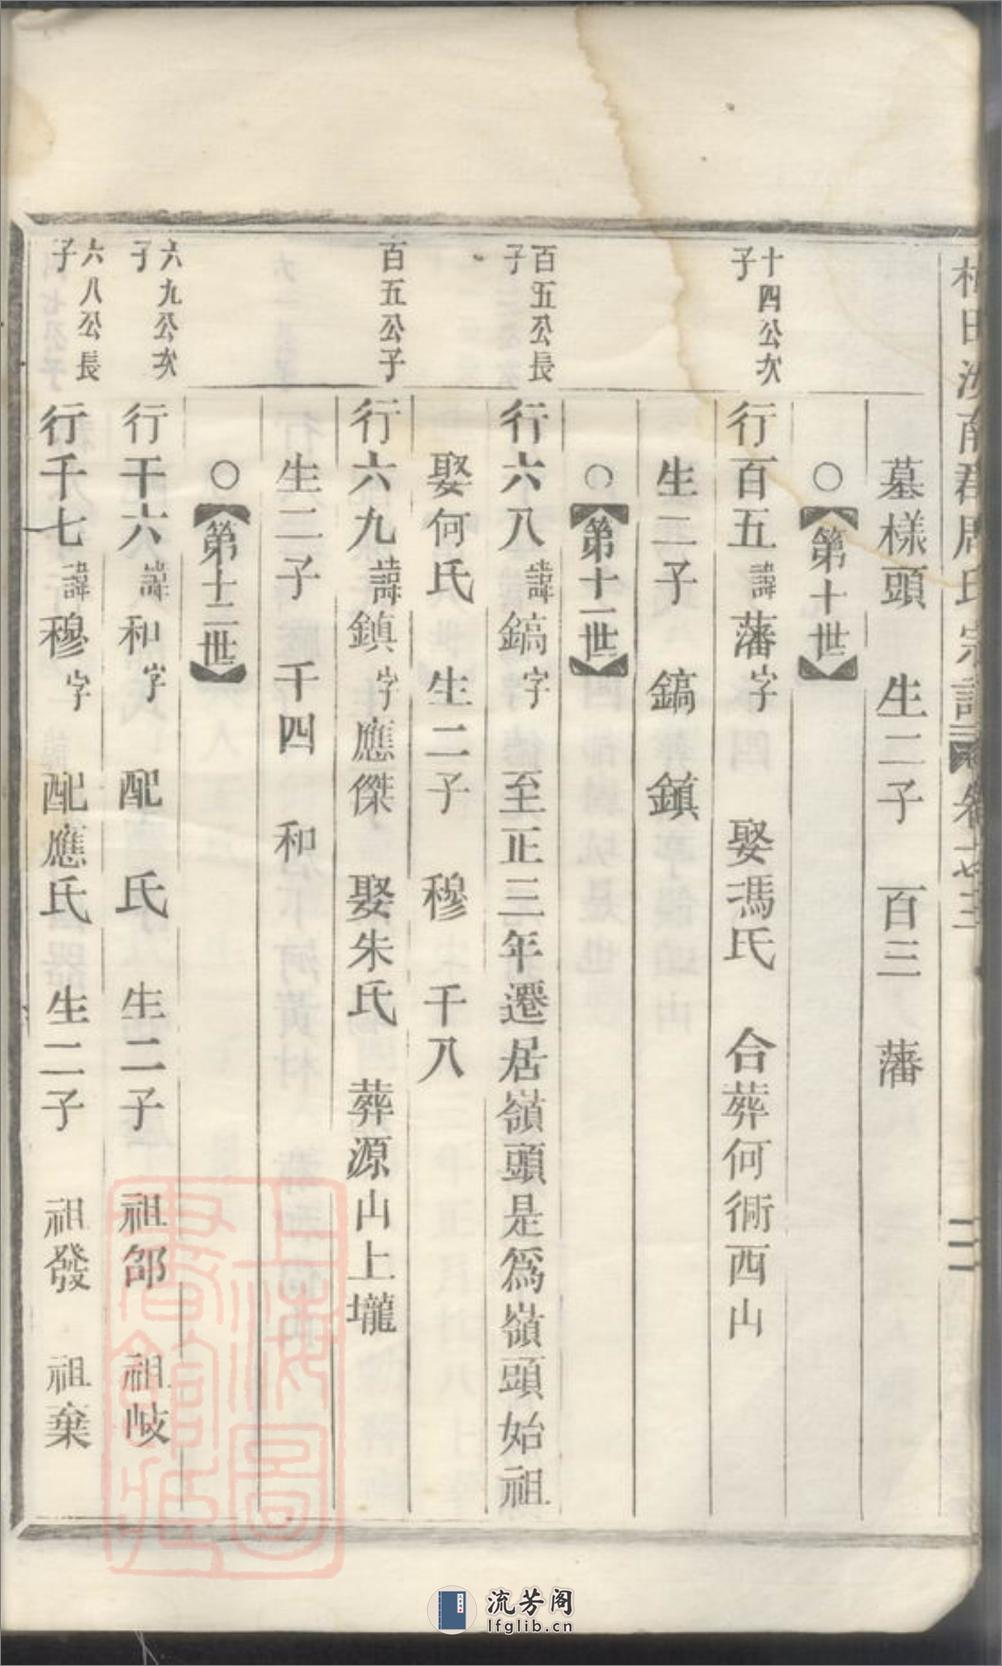 汝南郡周氏宗譜 卷之三 二
墓樣頭 生二子 百三 藩
○【第十世】
十四公次子
行百五諱藩字 娶馮氏 合葬何衕西山
生二子 鎬 鎮
○【第十一世】
百五公長子
行六八諱鎬字 至正三年遷居嶺頭是爲嶺頭始祖
娶何氏 生二子 穆 千八
百五公子
行六九諱鎮字應傑 娶朱氏 葬源山上壠
生二子 千四 和
○【第十二世】
六九公次子
行千六諱和字 配 氏 生二子 祖郃 祖岐
六八公長子
行千七諱穆字 配應氏 生二子 祖發 祖棄
上海圖書館藏
流芳阁
lfglib.cn